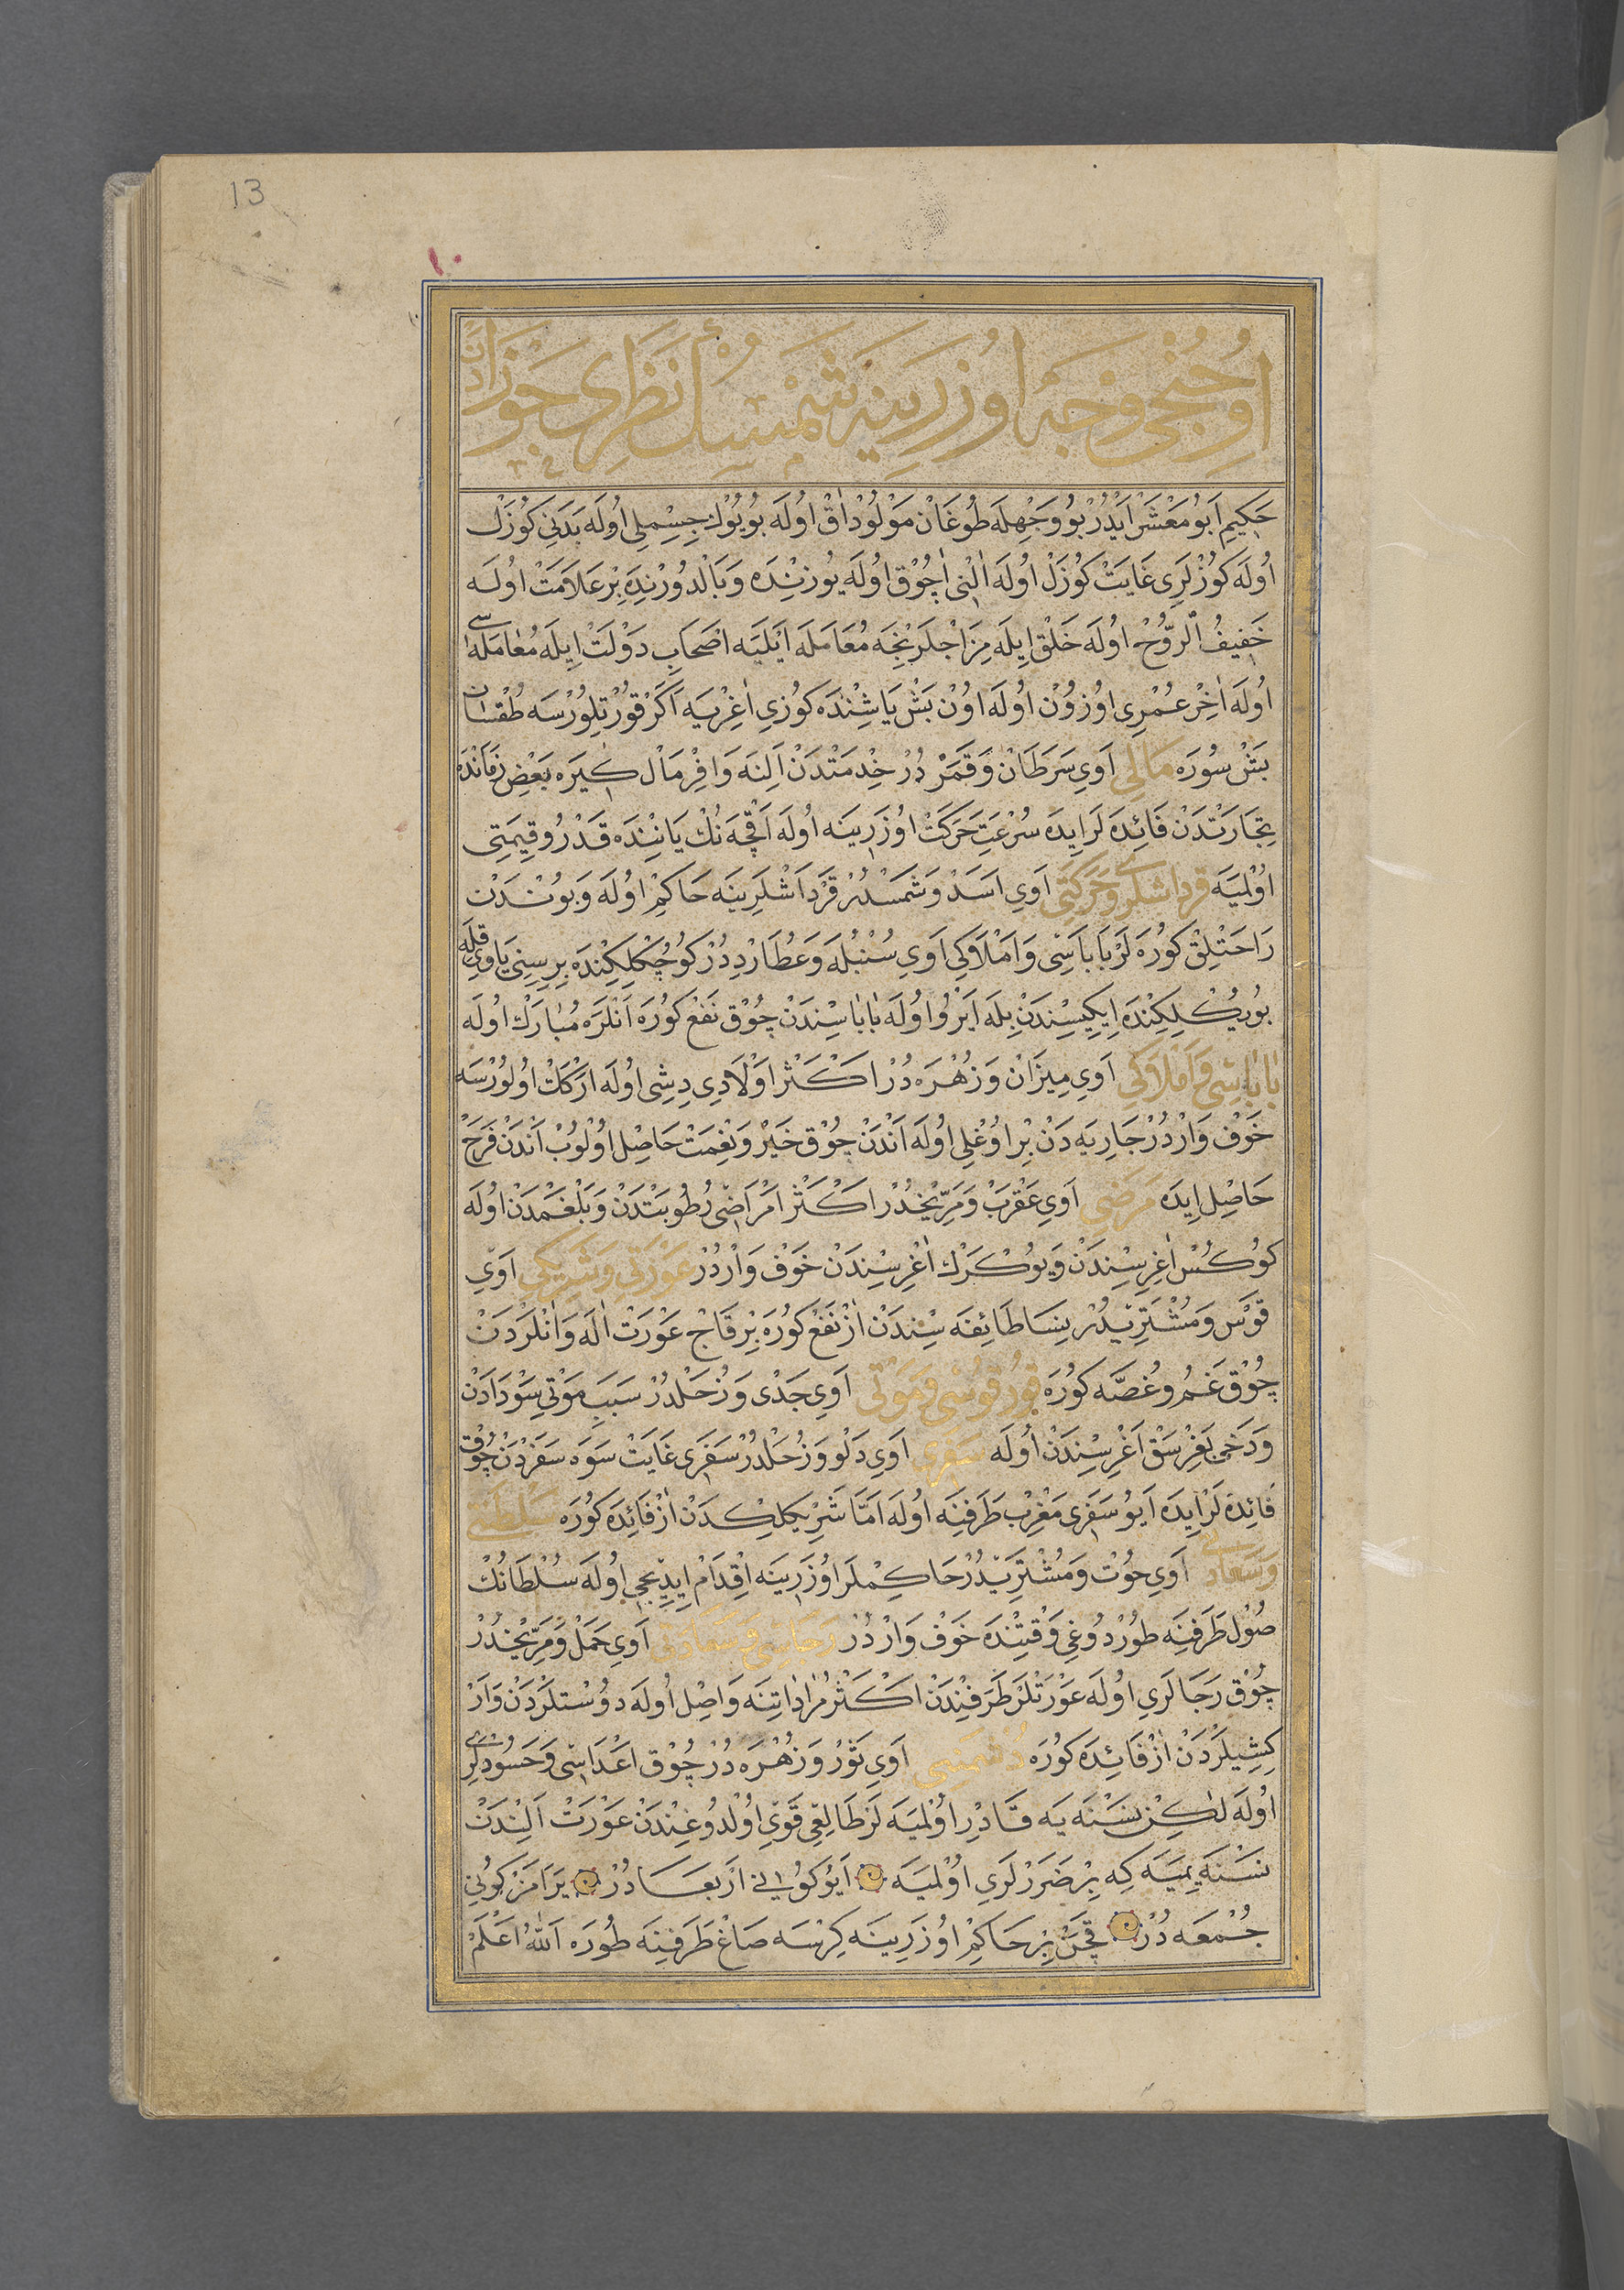 13
١٠
اُوچُنْجِی وَجْه اوُزَرِینَه شَمْسُڭ نَظَرِی جَوْزَادَنْ
حَكِیمِ اَبُو مَعْشَرْ اَیْدُرْ بُو وَجْهِلَه طُوغَانْ مَوْلُودْ اٰقْ اُولَه بُویُوْكْ جِسِمْلِی اُولَه بَدَنِی كُوزَلْ
اُولَه كُوزْلَرِی غَایَتْ كُوزَلْ اُولَه اٰلْنِی اٰچُوْقْ اُولَه یُوزِنْدَه وَ بَالْدُورِنْدَه بِرْ عَلَامَتْ اُولَه
خَفِیفُ الرُّوحْ اُولَه خَلْقْ اِیلَه مِزَاجْلَرِنْجَه مُعَامَلَه اَیْلَیَه اَصْحَابِ دَوْلَتْ اِیلَه مُعَامَلَه سِی
اُولَه اٰخِرْ عُمْرِی اوُزُوْنْ اُولَه اوُنْ بَشْ یَاشِنْدَه كُوزِی اٰغِرْیَه اَكَرْ قُورْتِلُورْسَه طُقْسَان
بَشْ سُورَه مَالِی اَوِی سَرَطَانْ وَ قَمَرْ دُرْ خِدْمَتْدَنْ اَلِنَه وَافِرْ مَالْ كِیرَه بَعْضِ زَمَانْدَه
تِجَارَتْدَنْ فَائِدَه لَرْ اِیدَه سُرْعَتِ حَرَكَتْ اوُزَرِینَه اُولَه اَقْچَه نُكْ یَانِنْدَه قَدْرُ و قِیمَتِی
اوُلْمَیَه قَرِدَاشْلَرِی وَ حَرَكَتِی اَوِی اَسَدْ وَ شَمْسْدُرْ قَرْدَاشْلَرِینَه حَاكِمْ اُولَه وَ بُونْدَنْ
رَاحَتْلِقْ كُورَه لَرْ بَابَاسِی وَ اَمْلَاكِی اَوِی سُنْبُلَه وَ عُطَارِدْ دُرْ كُوچُكْلِكِنْدَه بِرِیسِنِی یَاوِی قِلَه
بُویُكْلِكِنْدَه اِیكِیسِنْدَنْ بِلَه اَیْرُو اُولَه بَابَاسِنْدَنْ چُوْقْ نَفْعْ كُورَه اَنْلَرَه مُبَارَكْ اُولَه
بَابَاسِی وَ اَمْلَاكِی اَوِی مِیزَانْ وَ زُهْرَه دُرْ اَكْثَرْ اَوْلَادِی دِشِی اُولَه اَرْكَكْ اوُلُورْسَه
خَوْفْ وَارْدُرْ جَارِیَه دَنْ بِرْ اوُغْلِی اُولَه اَنْدَنْ چُوْقْ خَیْرْ وَ نِعْمَتْ حَاصِل اُوْلُوبْ اَنْدَنْ فَرَحْ
حَاصِلْ اِیدَه مَرَضِی اَوِی عَقْرَبْ وَ مَرِّیخْدُرْ اَكْثَرْ اَمْرَاضِی رُطُوبَتْدَنْ وَ بَلْغَمْدَنْ اُولَه
كُوكُسْ اٰغِرِسِنْدَنْ وَ یُوكْرَكْ اٰغْرِسِنْدَنْ خَوْفْ وَارْدُرْ عَوْرَتِی وَ شَرِیكِی اَوِی
قَوْسْ وَ مُشْتَرِیدُرْ نِسَا طَائِفَه سِنْدَنْ اٰزْ نَفْعْ كُورَه بِرْ قَاجْ عَوْرَتْ اٰلَه وَ اٰنْلَرْدَنْ
چُوْقْ غَمُ و غُصَّه كُورَه قُورْقُوسِی وَ مَوْتِی اَوِی جَدْی وَ زُحَلْدُرْ سَبَبِ مَوْتِی سَوْدَادَنْ
وَ دَخِی بَغِرْسَقْ اَغْرِسِنْدَنْ اُولَه سَفَرِی اَوِی دَلْو وَ زُحَلْدُرْ سَفَرِی غَایَتْ سَوَه سَفَرْدَنْ چُوْقْ
فَائِدَه لَرْ اِیدَه اَیُو سَفَرِی مَغْرِبْ طَرَفِنَه اُولَه اَمَّا شَرِیكْلِكْدَنْ اٰزْ فَائِدَه كُورَه سَلْطَنَتِی
وَ سَعَادَتِی اَوِی حُوْتْ وَ مُشْتَرِیدُرْ حَاكِمْلَرْ اوُزَرِینَه اِقْدَامْ اِیدِیجِی اُولَه سُلْطَانُكْ
صُوْلْ طَرَفِنَه طُورْدُوغِی وَقْتِنْدَه خَوْفْ وَارْدُرْ رَجَاسِی وَ سَعَادَتِی اَوِی حَمَلْ وَ مَرِّیخْدُرْ
چُوْقْ رَجَالَرِی اُولَه عَوْرَتْلَرْ طَرَفِنْدَنْ اَكْثَرْ مُرَادَاتِنَه وَاصِلْ اُولَه دُوسْتْلَرْدَنْ وَارْ
كِشِیلَرْدَنْ اٰزْ فَائِدَه كُورَه دُشْمَنِی اَوِی ثَوْرْ وَ زُهْرَه دُرْ چُوْقْ اَعْدَاسِی وَ حَسُودْلَرِی
اُولَه لٰكِنْ نَسْنَه یَه قَادِرْ اُوْلْمَیَه لَرْ طَالِعِی قَوِی اُوْلْدُوغِنْدَنْ عَوْرَتْ اَلِنْدَنْ
نَسْنَه یِمَیَه كِه بِرْ ضَرَرْلَرِی اوُلْمَیَه اَیُو كُونِی اَرْبَعَا دُرْ یَرَامَزْ كُونِی
جُمْعَه دُرْ قَچَنْ بِرْ حَاكِمْ اوُزَرِینَه كِرْسَه صَاغْ طَرَفِنَه طُورَه اَللّٰهُ اَعْلَمْ